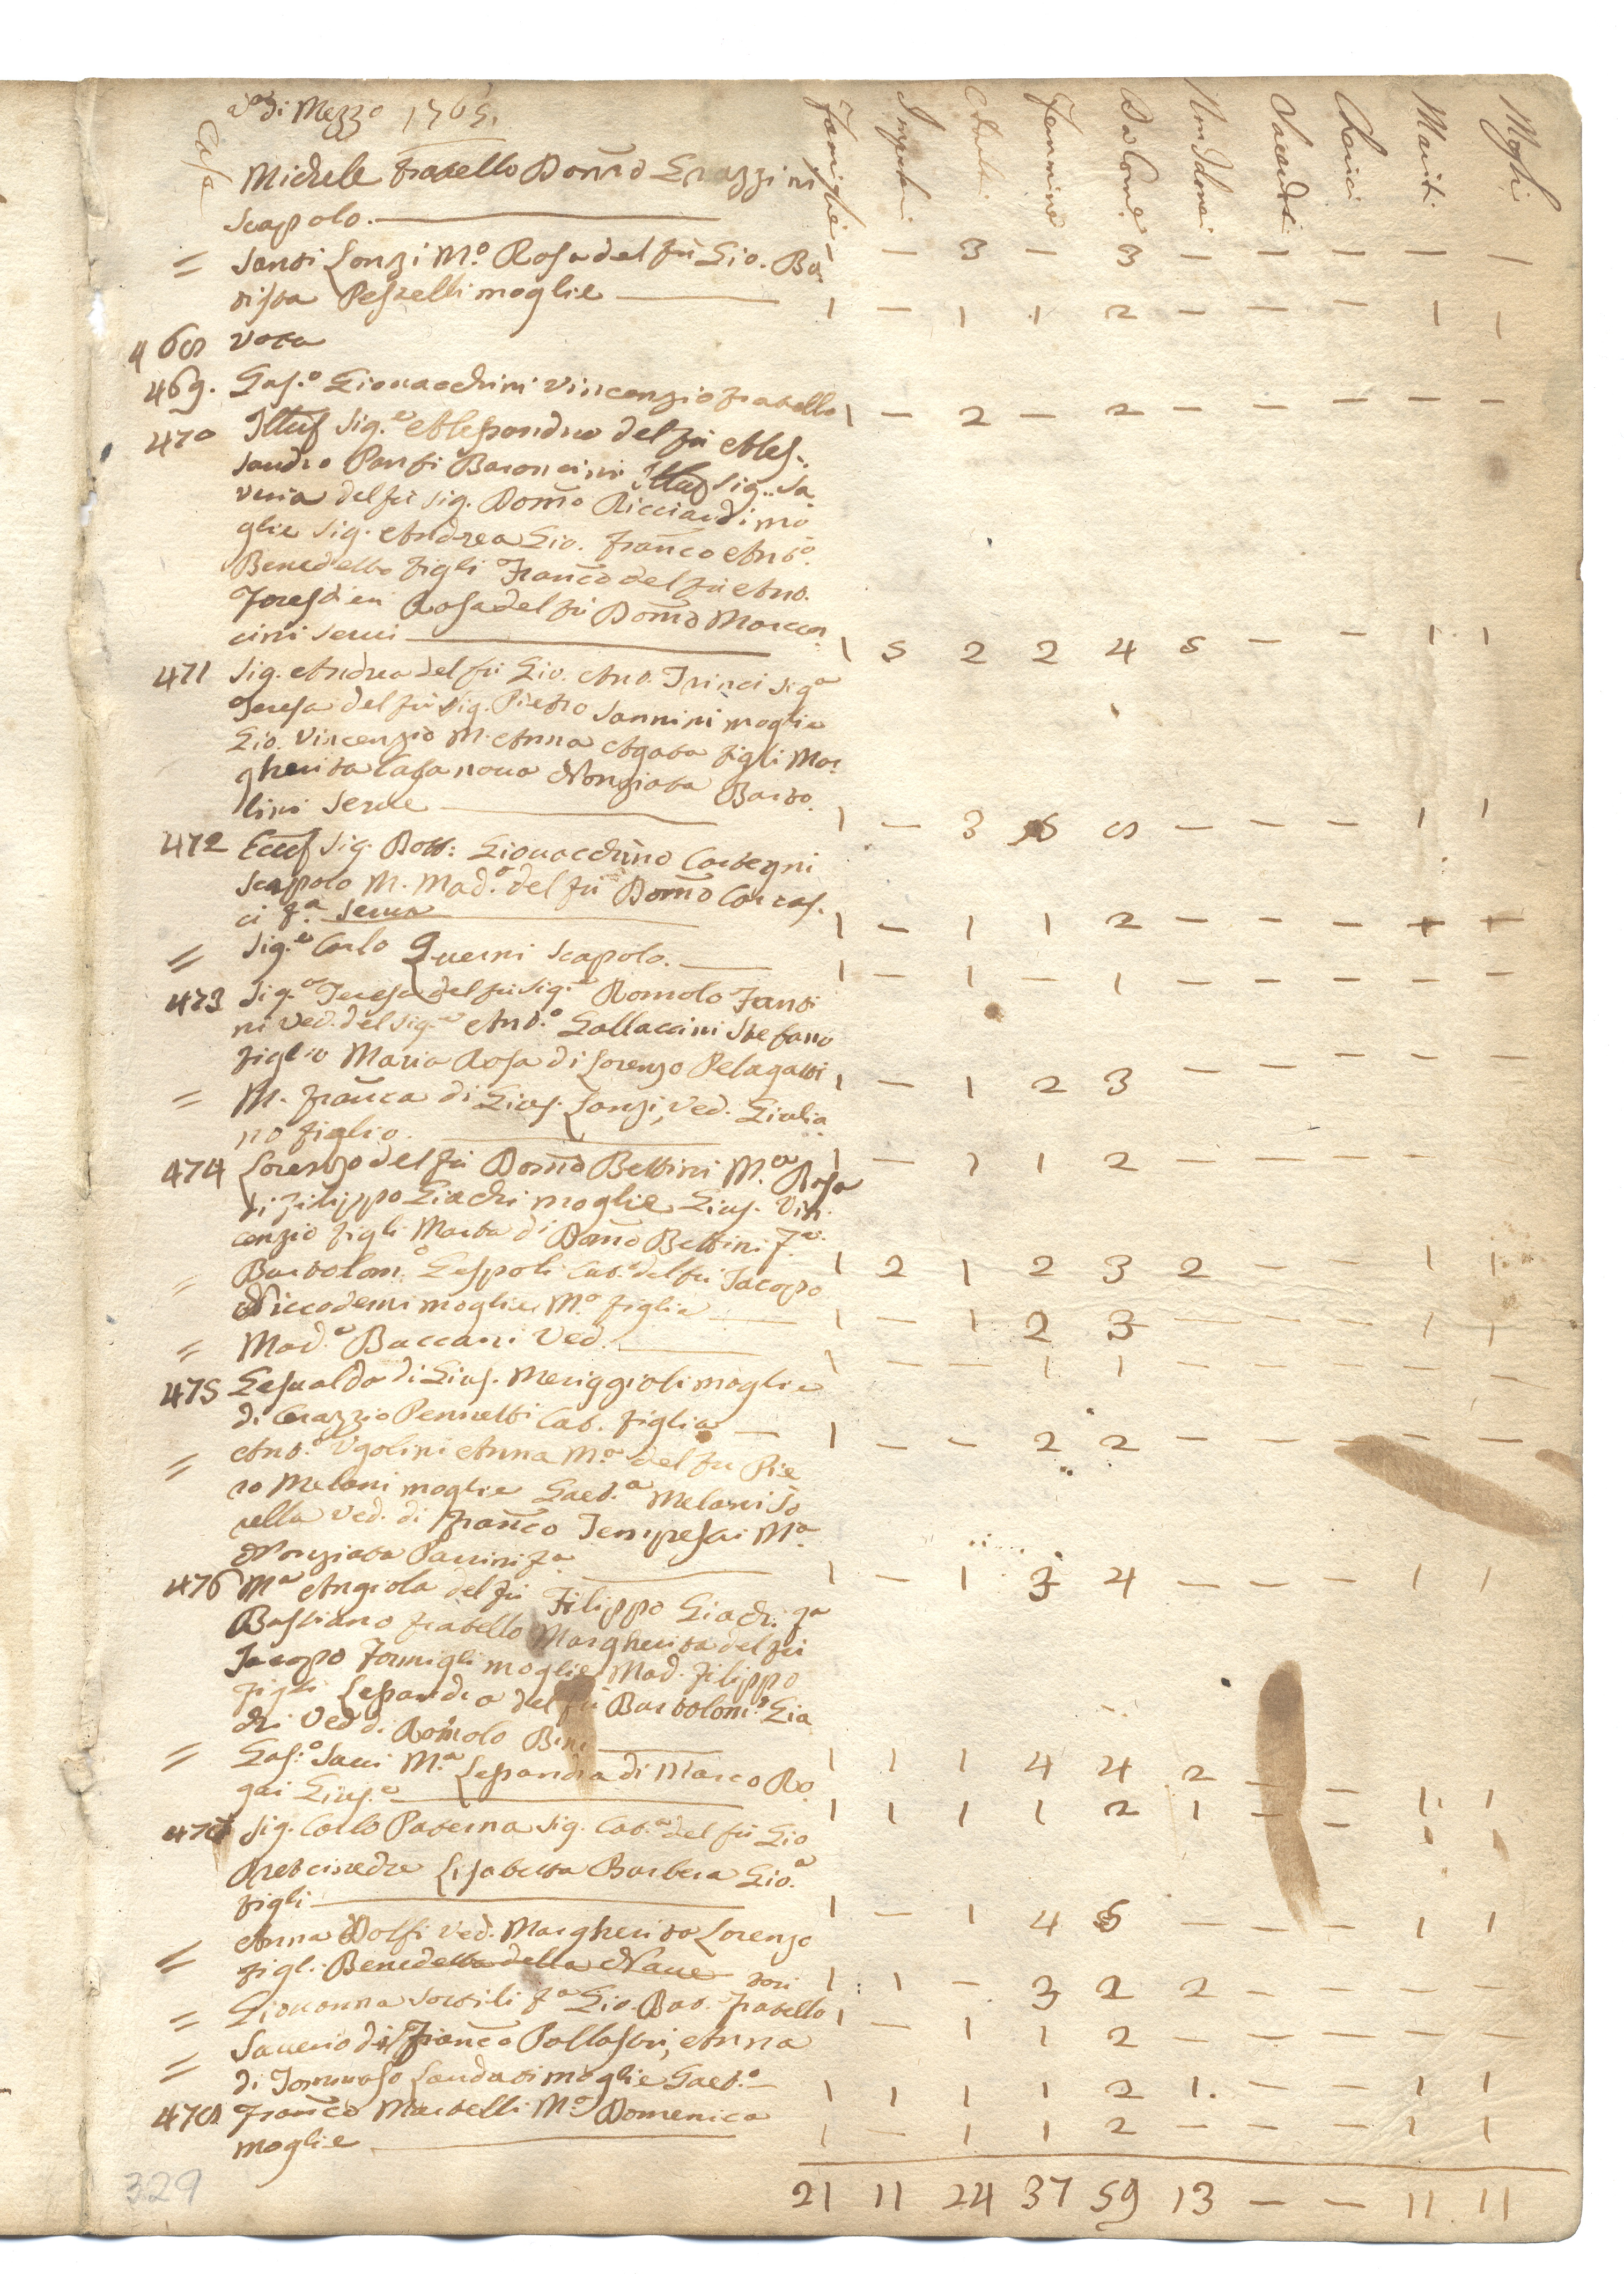 V.a di Mezzo 1765.
Case Famiglie Impuberi Adulti Femmine Da Com.e Non Idonei Sacerdoti Cherici Mariti Mogli
Michele fratello Dom.o Grazzini
Scapolo. 1 — 3 — 3 — — — — —
= Santi Lonzi M.a Rosa del fù Gio. Ba
tista Peszelli moglie 1 — 1 1 2 — — — 1 1
468 Vota
469. Gas.o Giovacchini Vincenzio fratello 1 — 2 — 2 — — — — —
470 Ill.mo Sig.e Alessandro del fù Ales.
sandro Pansi Baroncini Ill.ma Sig.a Sa
veria del fù Sig. Dom.o Ricciardi mo
glie Sig. Andrea Gio. Fran.co Ant.o
Benedetto figli Fran.co del fù Ant.
Rosa del fù Dom.o
cini servi 1 5 2 2 4 5 — — 1 1
471 Sig. Andrea del fù Gio. Ant. Trinci Sig.a
Teresa del fù Sig. Pietro Sannini moglie
Gio. Vincenzio M. Anna Agata figli Mar
gherita Casanova Nonziata Barto.
lini Serve 1 — 3 5 8 — — — 1 1
472 Ecc.mo Sig. Dott: Giovacchino Cartegni
Scapolo M. Mad.a del fù Dom.o Corras.
ci f.a serva 1 — 1 1 2 — — — + +
= Sig.e Carlo Querni Scapolo. 1 — 1 — 1 — — — — —
473 Sig.a Teresa del fù Sig.e Romolo Fanti
ni Ved. del Sig.e Ant.o Gallaccini Stefano
figlio Maria Rosa di Lorenzo Pelagatti 1 — 1 2 3 — — — — —
= M. Fran.ca di Gius. Lanzi, Ved. Giulia
no figlio. 1 — 1 1 2 — — — —
474 Lorenzo del fù Dom.o Bettini M.a Rosa
di Filippo Giachi moglie Gius. Vin.
cenzio figli Marta di Dom.o Bettini f.a 1 2 1 2 3 2 — — 1 1
= Bartolom.o Gespoli Cat.a del fù Jacopo
Niccodemi moglie M.a figlia 1 — 1 2 3 — — — 1 1
= Mad.a Baccani Ved. 1 — — 1 1 — — — — —
475 Gesualda di Gius. Meriggioli moglie
di Orazzio Pennetti Cat. figlia 1 — — 2 2 — — — — —
= Ant.o Ugolini Anna M.a del fù Pie
ro Melani moglie Gaet.a Melani so
rella Ved. di Fran.co Tempesti M.a
Nonziata Parrini f.a 1 — 1 3 4 — — — 1 1
476 M.a Angiola del fù Filippo Giachi f.a
Bastiano fratello Margherita del fù
Jacopo Formigli moglie Mad. Filippo
figli Lesandra del fù Bartolom.o Gia
chi Ved. di Romolo Bini 1 1 1 4 4 2 — — 1 1
= Gas.o Sani M.a Lesandra di Marco Ro
gai Gius.e 1 1 1 1 2 1 — — 1 1
477 Sig. Carlo Paterna Sig. Cat.a del fù Gio
Lisabetta Barbera Gio.a
figli 1 — 1 4 5 — — — 1 1
= Anna Dolfi Ved. Margherita Lorenzo
figli Benedetta della Nave 1 1 — 3 2 2 — — — —
= Giovanna Sortili f.a Gio. Bat. fratello 1 — 1 1 2 — — — — —
= Saverio di Fran.co Pollastri, Anna
di Tommaso Landati moglie Gaet.o 1 1 1 1 2 1. — — 1 1
478 Fran.co Martelli M.a Domenica
moglie 1 — 1 1 2 — — — 1 1
329 21 11 24 37 59 13 — — 11 11